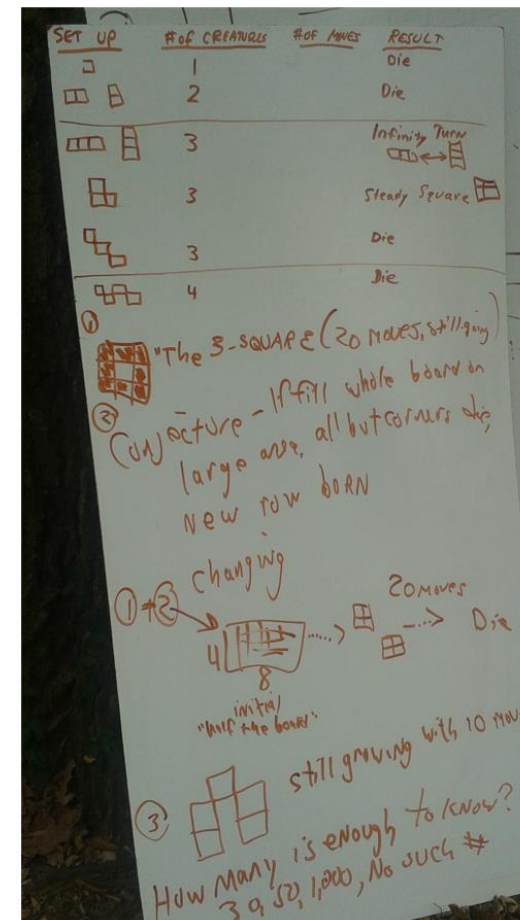 SET UP # OF CREATURES # OF MOVES RESULT
1 Die
2 Die
3 Infinity Turn
3 Steady Square
3 Die
4 Die
①
"The 3-SQUARE (20 moves, still going)
②
Conjecture - If fill whole board or
large area, all but corners die,
new row born
changing
① + ②
20 moves
4 Die
8
initial
"half the board"
③ still growing with 10 mov
How Many is enough to know?
30, 50, 1,000, No such #